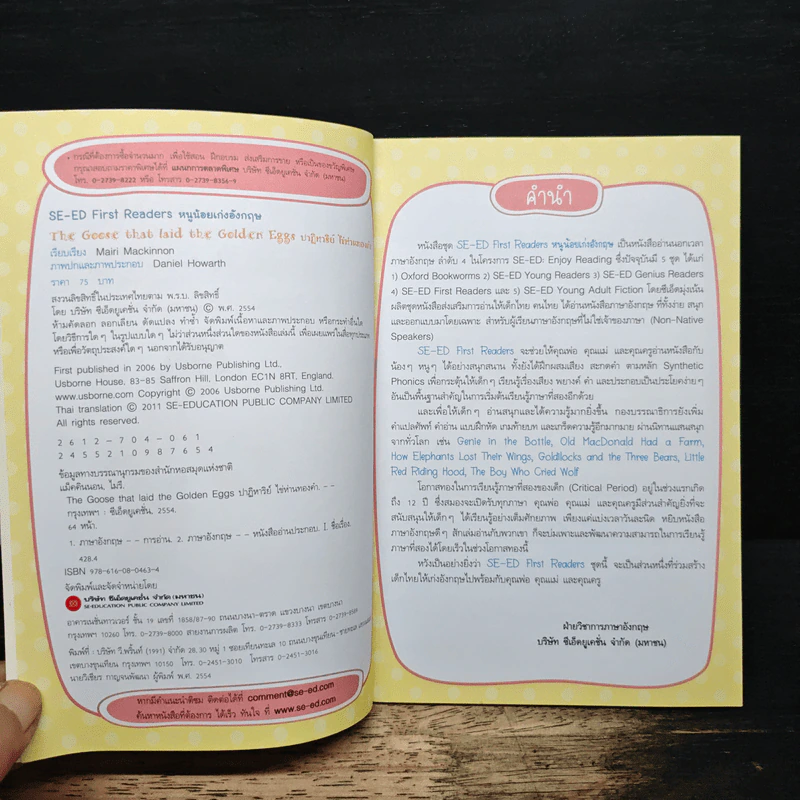 • กรณีที่ต้องการซื้อจำนวนมาก เพื่อใช้สอน ฝึกอบรม ส่งเสริมการขาย หรือเป็นของขวัญพิเศษ
กรุณาสอบถามราคาพิเศษได้ที่ แผนกการตลาดพิเศษ บริษัท ซีเอ็ดยูเคชั่น จำกัด (มหาชน)
โทร. 0-2739-8222 หรือ โทรสาร 0-2739-8356-9
SE-ED First Readers หนูน้อยเก่งอังกฤษ
The Goose that laid the Golden Eggs ปาฏิหาริย์ ไข่ห่านทองคำ
เรียบเรียง Mairi Mackinnon
ภาพปกและภาพประกอบ Daniel Howarth
ราคา 75 บาท
สงวนลิขสิทธิ์ในประเทศไทยตาม พ.ร.บ. ลิขสิทธิ์
โดย บริษัท ซีเอ็ดยูเคชั่น จำกัด (มหาชน) © พ.ศ. 2554
ห้ามคัดลอก ลอกเลียน ดัดแปลง ทำซ้ำ จัดพิมพ์เนื้อหาและภาพประกอบ หรือกระทำอื่นใด
โดยวิธีการใดๆ ในรูปแบบใดๆ ไม่ว่าส่วนหนึ่งส่วนใดของหนังสือเล่มนี้ เพื่อเผยแพร่ในสื่อทุกประเภท
หรือเพื่อวัตถุประสงค์ใดๆ นอกจากได้รับอนุญาต
First published in 2006 by Usborne Publishing Ltd.
Usborne House, 83-85 Saffron Hill, London EC1N 8RT, England.
www.usborne.com Copyright © 2006 Usborne Publishing Ltd.
Thai translation © 2011 SE-EDUCATION PUBLIC COMPANY LIMITED
All rights reserved.
2 6 1 2 - 7 0 4 - 0 6 1
2 4 5 5 2 1 0 9 8 7 6 5 4
ข้อมูลทางบรรณานุกรมของสำนักหอสมุดแห่งชาติ
แม็คคินนอน, ไมรี.
The Goose that laid the Golden Eggs ปาฏิหาริย์ ไข่ห่านทองคำ. - -
กรุงเทพฯ : ซีเอ็ดยูเคชั่น, 2554.
64 หน้า.
1. ภาษาอังกฤษ - - การอ่าน. 2. ภาษาอังกฤษ - - หนังสืออ่านประกอบ. I. ชื่อเรื่อง.
428.4
ISBN 978-616-08-0463-4
จัดพิมพ์และจัดจำหน่ายโดย
บริษัท ซีเอ็ดยูเคชั่น จำกัด (มหาชน)
SE-EDUCATION PUBLIC COMPANY LIMITED
อาคารเนชั่นทาวเวอร์ ชั้น 19 เลขที่ 1858/87-90 ถนนบางนา-ตราด แขวงบางนา เขตบางนา
กรุงเทพฯ 10260 โทร. 0-2739-8000 สายงานการผลิต โทร. 0-2739-8333 โทรสาร 0-2739-8589
พิมพ์ที่ : บริษัท วี.พริ้นท์ (1991) จำกัด 28, 30 หมู่ 1 ซอยเทียนทะเล 10 ถนนบางขุนเทียน-ชายทะเล
เขตบางขุนเทียน กรุงเทพฯ 10150 โทร. 0-2451-3010 โทรสาร 0-2451-3016
นายวิเชียร กาญจนพัฒนา ผู้พิมพ์ พ.ศ. 2554
หากมีคำแนะนำติชม ติดต่อได้ที่ comment@se-ed.com
ค้นหาหนังสือที่ต้องการ ได้เร็ว ทันใจ ที่ www.se-ed.com
คำนำ
หนังสือชุด SE-ED First Readers หนูน้อยเก่งอังกฤษ เป็นหนังสืออ่านนอกเวลา
ภาษาอังกฤษ ลำดับ 4 ในโครงการ SE-ED: Enjoy Reading ซึ่งปัจจุบันมี 5 ชุด ได้แก่
1) Oxford Bookworms 2) SE-ED Young Readers 3) SE-ED Genius Readers
4) SE-ED First Readers และ 5) SE-ED Young Adult Fiction โดยซีเอ็ดมุ่งเน้น
ผลิตชุดหนังสือส่งเสริมการอ่านให้เด็กไทย คนไทย ได้อ่านหนังสือภาษาอังกฤษ ที่ทั้งง่าย สนุก
และออกแบบมาโดยเฉพาะ สำหรับผู้เรียนภาษาอังกฤษที่ไม่ใช่เจ้าของภาษา (Non-Native
Speakers)
SE-ED First Readers จะช่วยให้คุณพ่อ คุณแม่ และคุณครูอ่านหนังสือกับ
น้องๆ หนูๆ ได้อย่างสนุกสนาน ทั้งยังได้ฝึกผสมเสียง สะกดคำ ตามหลัก Synthetic
Phonics เพื่อกระตุ้นให้เด็กๆ เรียนรู้เรื่องเสียง พยางค์ คำ และประกอบเป็นประโยคง่ายๆ
อันเป็นพื้นฐานสำคัญในการเริ่มต้นเรียนรู้ภาษาที่สองอีกด้วย
และเพื่อให้เด็กๆ อ่านสนุกและได้ความรู้มากยิ่งขึ้น กองบรรณาธิการยังเพิ่ม
คำแปลศัพท์ คำอ่าน แบบฝึกหัด เกมท้ายบท และเกร็ดความรู้อีกมากมาย ผ่านนิทานแสนสนุก
จากทั่วโลก เช่น Genie in the Bottle, Old MacDonald Had a Farm,
How Elephants Lost Their Wings, Goldilocks and the Three Bears, Little
Red Riding Hood, The Boy Who Cried Wolf
โอกาสทองในการเรียนรู้ภาษาที่สองของเด็ก (Critical Period) อยู่ในช่วงแรกเกิด
ถึง 12 ปี ซึ่งสมองจะเปิดรับทุกภาษา คุณพ่อ คุณแม่ และคุณครูมีส่วนสำคัญยิ่งที่จะ
สนับสนุนให้เด็กๆ ได้เรียนรู้อย่างเต็มศักยภาพ เพียงแค่แบ่งเวลาวันละนิด หยิบหนังสือ
ภาษาอังกฤษดีๆ สักเล่มอ่านกับพวกเขา ก็จะบ่มเพาะและพัฒนาความสามารถในการเรียนรู้
ภาษาที่สองได้โดยเร็วในช่วงโอกาสทองนี้
หวังเป็นอย่างยิ่งว่า SE-ED First Readers ชุดนี้ จะเป็นส่วนหนึ่งที่ร่วมสร้าง
เด็กไทยให้เก่งอังกฤษไปพร้อมกับคุณพ่อ คุณแม่ และคุณครู
ฝ่ายวิชาการภาษาอังกฤษ
บริษัท ซีเอ็ดยูเคชั่น จำกัด (มหาชน)